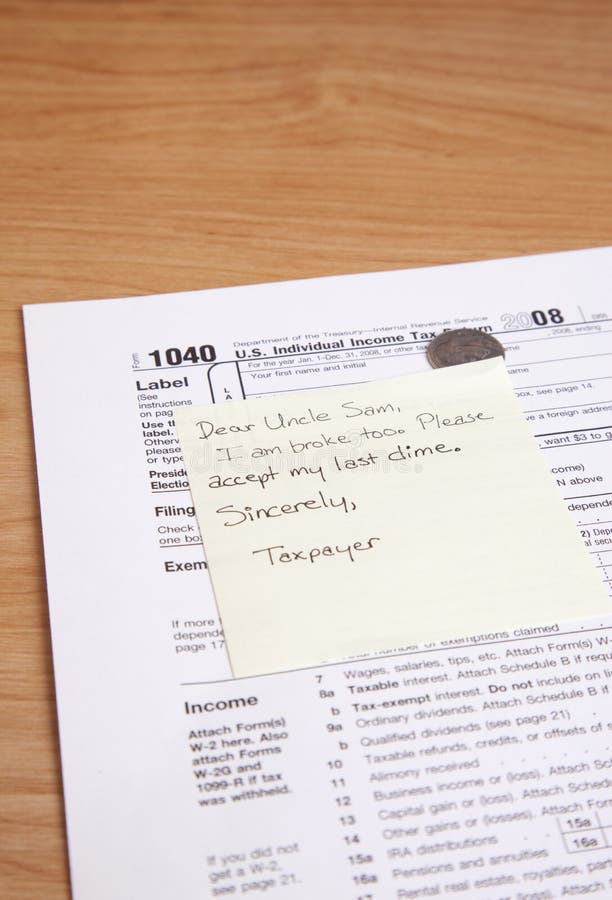 Form 1040
Department of the Treasury—Internal Revenue Service
U.S. Individual Income Tax Return 2008
For the year Jan. 1–Dec. 31, 2008, or other tax
2008, ending
Label
(See
instructions
on pag
Use th
label.
Otherw
please
or type
Presid
Electio
L
A
Your first name and initial
see page 14.
a foreign address,
want $3 to g
Dear Uncle Sam,
I am broke too. Please
accept my last dime.
Sincerely,
Taxpayer
Filing
Check
one box
come)
N above
depende
Exem
If more
depende
page 17
number of exemptions claimed
Income
Attach Form(s)
W-2 here. Also
attach Forms
W-2G and
1099-R if tax
was withheld.
If you did not
get a W-2,
see page 21.
7 Wages, salaries, tips, etc. Attach Form(s)
8a Taxable interest. Attach Schedule B if requi
b Tax-exempt interest. Do not include on li
9a Ordinary dividends. Attach Schedule B if
b Qualified dividends (see page 21)
10 Taxable refunds, credits, or offsets of s
11 Alimony received
12 Business income or (loss). Attach Sche
13 Capital gain or (loss). Attach Sched
14 Other gains or (losses). Attach For
15a IRA distributions 15a
16a Pensions and annuities 16a
Rental real estate, royalties, par